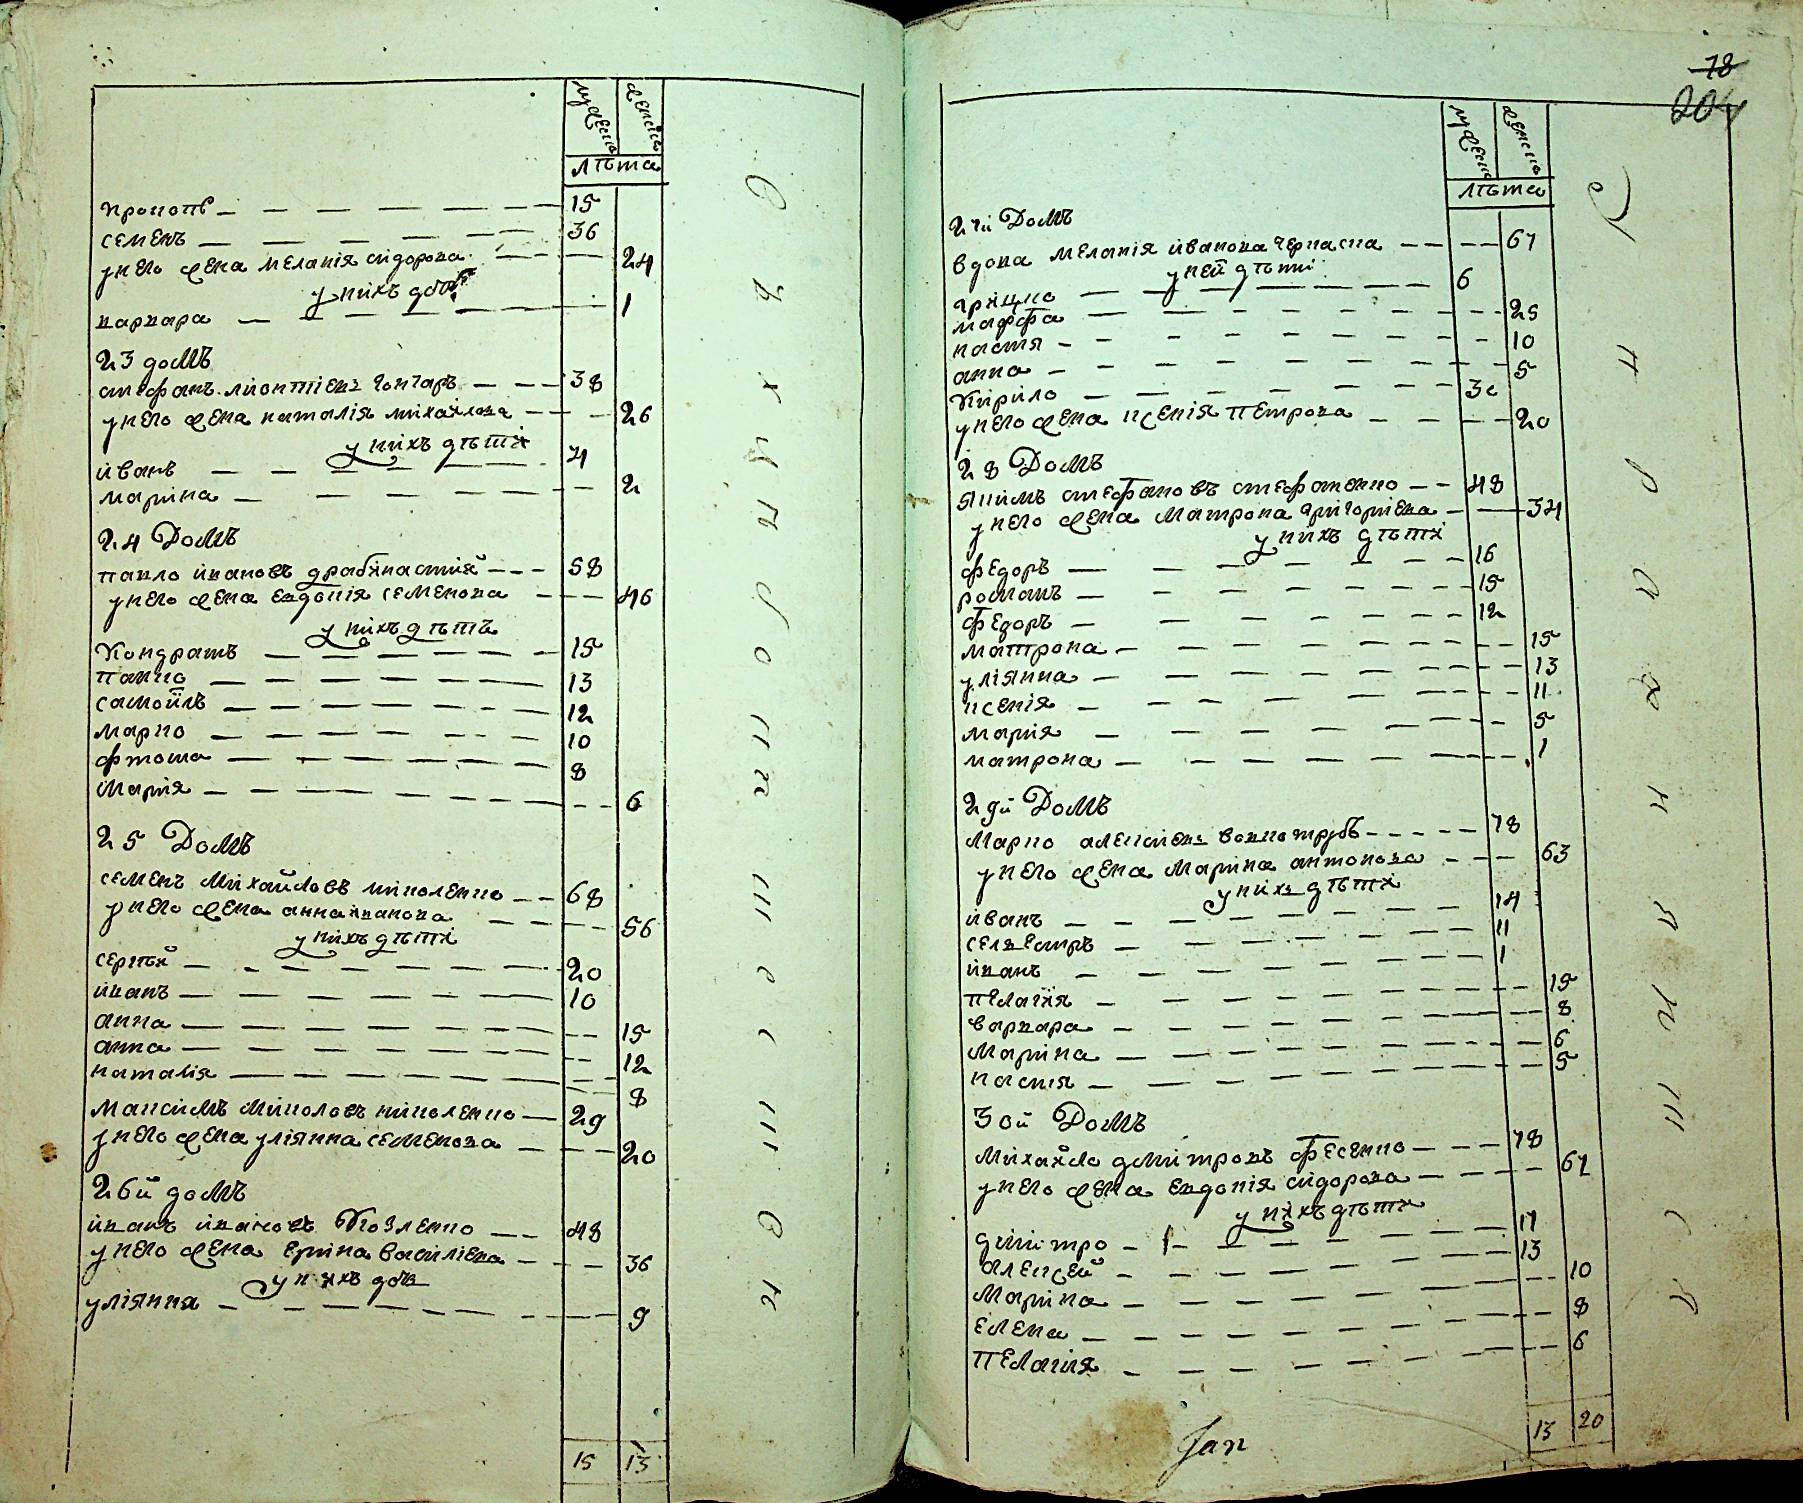 мужеск женск
лѣта
прокопъ — 15
семенъ — 36
у него жена меланія сидорова — 24
у нихъ дочь
варвара — 1
23 домъ
стефанъ Гончаръ — 38
у него жена наталія михайлова — 26
у нихъ дѣти
иванъ — 4
марина — 2
24 Домъ
павло ивановъ — 58
у него жена евдокія семенова — 46
у нихъ дѣти
Кондратъ — 15
павло — 13
самойлъ — 12
марко — 10
8
Марія — 6
25 Домъ
семенъ Михайловъ — 68
у него жена анна иванова — 56
у нихъ дѣти
сергѣй — 20
иванъ — 10
анна — 15
анна — 12
наталія — 8
максимъ — 29
у него жена уліянна семенова — 20
26й домъ
иванъ ивановъ Козленко — 48
у него жена ерина василіева — 36
у нихъ дочь
уліянна — 9
15 13
18
204
мужеск женск
лѣта
27й Домъ
вдова меланія иванова — 67
у ней дѣти
грицко — 6
25
настя — 10
анна — 5
Кирило — 30
у него жена ксенія петрова — 20
28 Домъ
якимъ стефановъ стефаненко — 48
у него жена матрона григоріева — 34
у нихъ дѣти
федоръ — 16
романъ — 15
федоръ — 12
матрона — 15
уліянна — 13
ксенія — 11
марія — 5
матрона — 1
29й Домъ
марко — 78
у него жена марина антонова — 63
у нихъ дѣти
иванъ — 14
селвестръ — 11
иванъ — 1
пелагія — 15
варвара — 8
марина — 6
5
30й Домъ
михайло дмитровъ фесенко — 78
у него жена евдокія сидорова — 67
у нихъ дѣти
дмитро — 17
алексей — 13
марина — 10
елена — 8
пелагия — 6
13 20